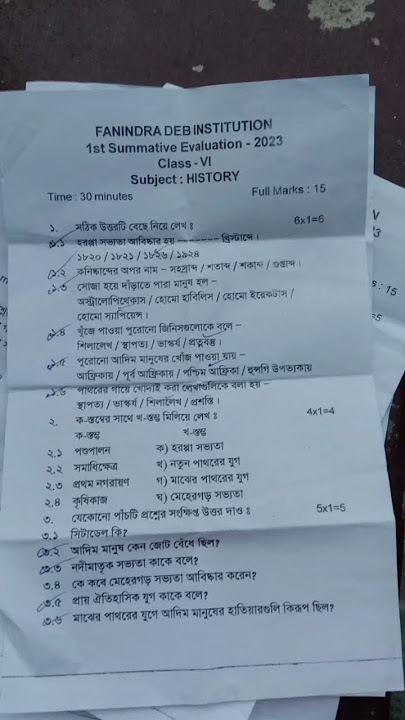 FANINDRA DEB INSTITUTION
1st Summative Evaluation - 2023
Class - VI
Subject : HISTORY
Time : 30 minutes Full Marks : 15
১. সঠিক উত্তরটি বেছে নিয়ে লেখ ঃ 6x1=6
১.১ হরপ্পা সভ্যতা আবিষ্কার হয় ------- খ্রিস্টাব্দে।
১৮২০ / ১৮২১ / ১৮২৬ / ১৯২৪
১.২ কনিষ্কাব্দের অপর নাম – সহস্রাব্দ / শতাব্দ / শকাব্দ / গুপ্তাব্দ।
১.৩ সোজা হয়ে দাঁড়াতে পারা মানুষ হল –
অস্ট্রালোপিথেকাস / হোমো হাবিলিস / হোমো ইরেকটাস /
হোমো স্যাপিয়েন্স।
১.৪ খুঁজে পাওয়া পুরোনো জিনিসগুলোকে বলে –
শিলালেখ / স্থাপত্য / ভাস্কর্য / প্রত্নবস্তু।
১.৫ পুরোনো আদিম মানুষের খোঁজ পাওয়া যায় –
আফ্রিকায় / পূর্ব আফ্রিকায় / পশ্চিম আফ্রিকা / হুন্সগি উপত্যকায়
১.৬ পাথরের গায়ে খোদাই করা লেখাগুলিকে বলা হয় –
স্থাপত্য / ভাস্কর্য / শিলালেখ / প্রশস্তি।
২. ক-স্তম্ভের সাথে খ-স্তম্ভ মিলিয়ে লেখ ঃ 4x1=4
ক-স্তম্ভ খ-স্তম্ভ
২.১ পশুপালন ক) হরপ্পা সভ্যতা
২.২ সমাধিক্ষেত্র খ) নতুন পাথরের যুগ
২.৩ প্রথম নগরায়ণ গ) মাঝের পাথরের যুগ
২.৪ কৃষিকাজ ঘ) মেহেরগড় সভ্যতা
৩. যেকোনো পাঁচটি প্রশ্নের সংক্ষিপ্ত উত্তর দাও ঃ 5x1=5
৩.১ সিটাডেল কি?
৩.২ আদিম মানুষ কেন জোট বেঁধে ছিল?
৩.৩ নদীমাতৃক সভ্যতা কাকে বলে?
৩.৪ কে কবে মেহেরগড় সভ্যতা আবিষ্কার করেন?
৩.৫ প্রায় ঐতিহাসিক যুগ কাকে বলে?
৩.৬ মাঝের পাথরের যুগে আদিম মানুষের হাতিয়ারগুলি কিরূপ ছিল?
V
: 15